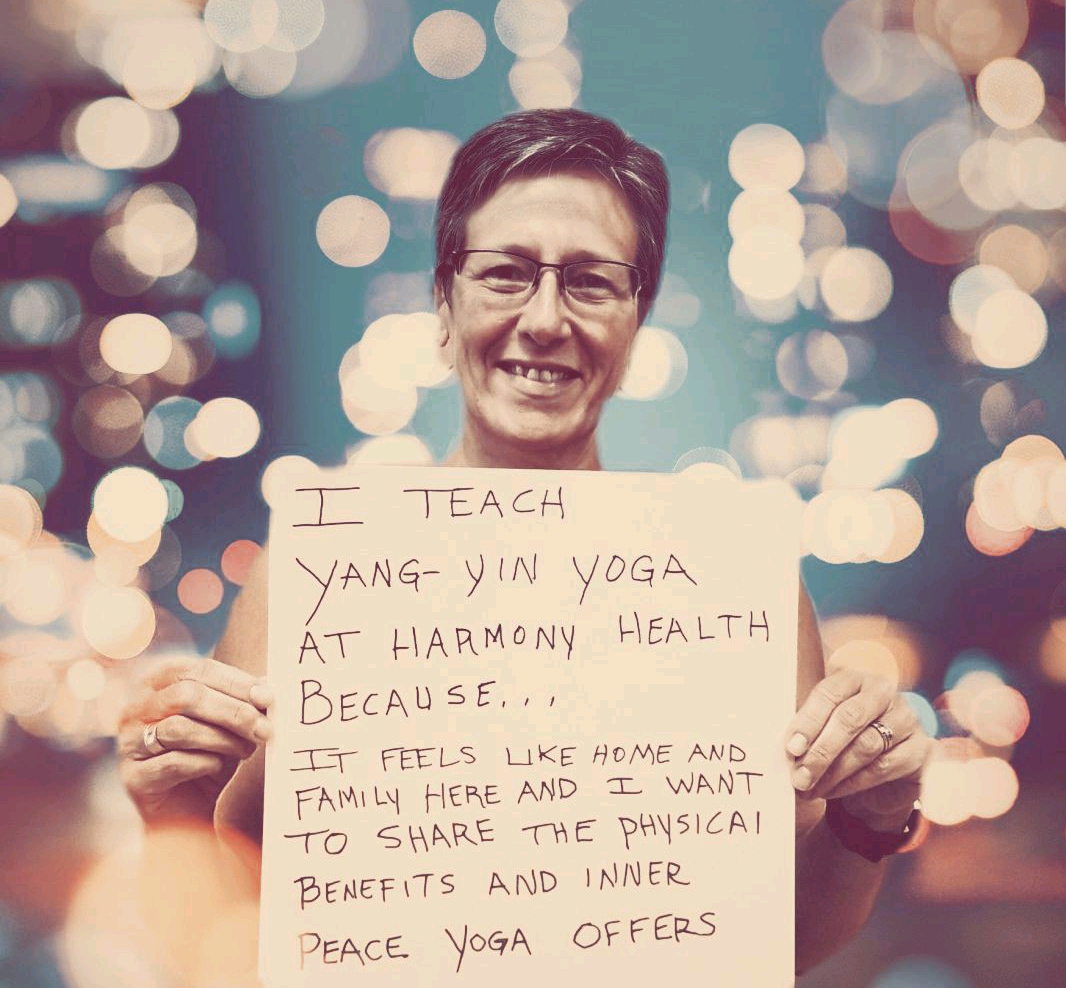 I TEACH
YANG-YIN YOGA
AT HARMONY HEALTH
BECAUSE...
IT FEELS LIKE HOME AND
FAMILY HERE AND I WANT
TO SHARE THE PHYSICAl
BENEFITS AND INNER
PEACE YOGA OFFERS